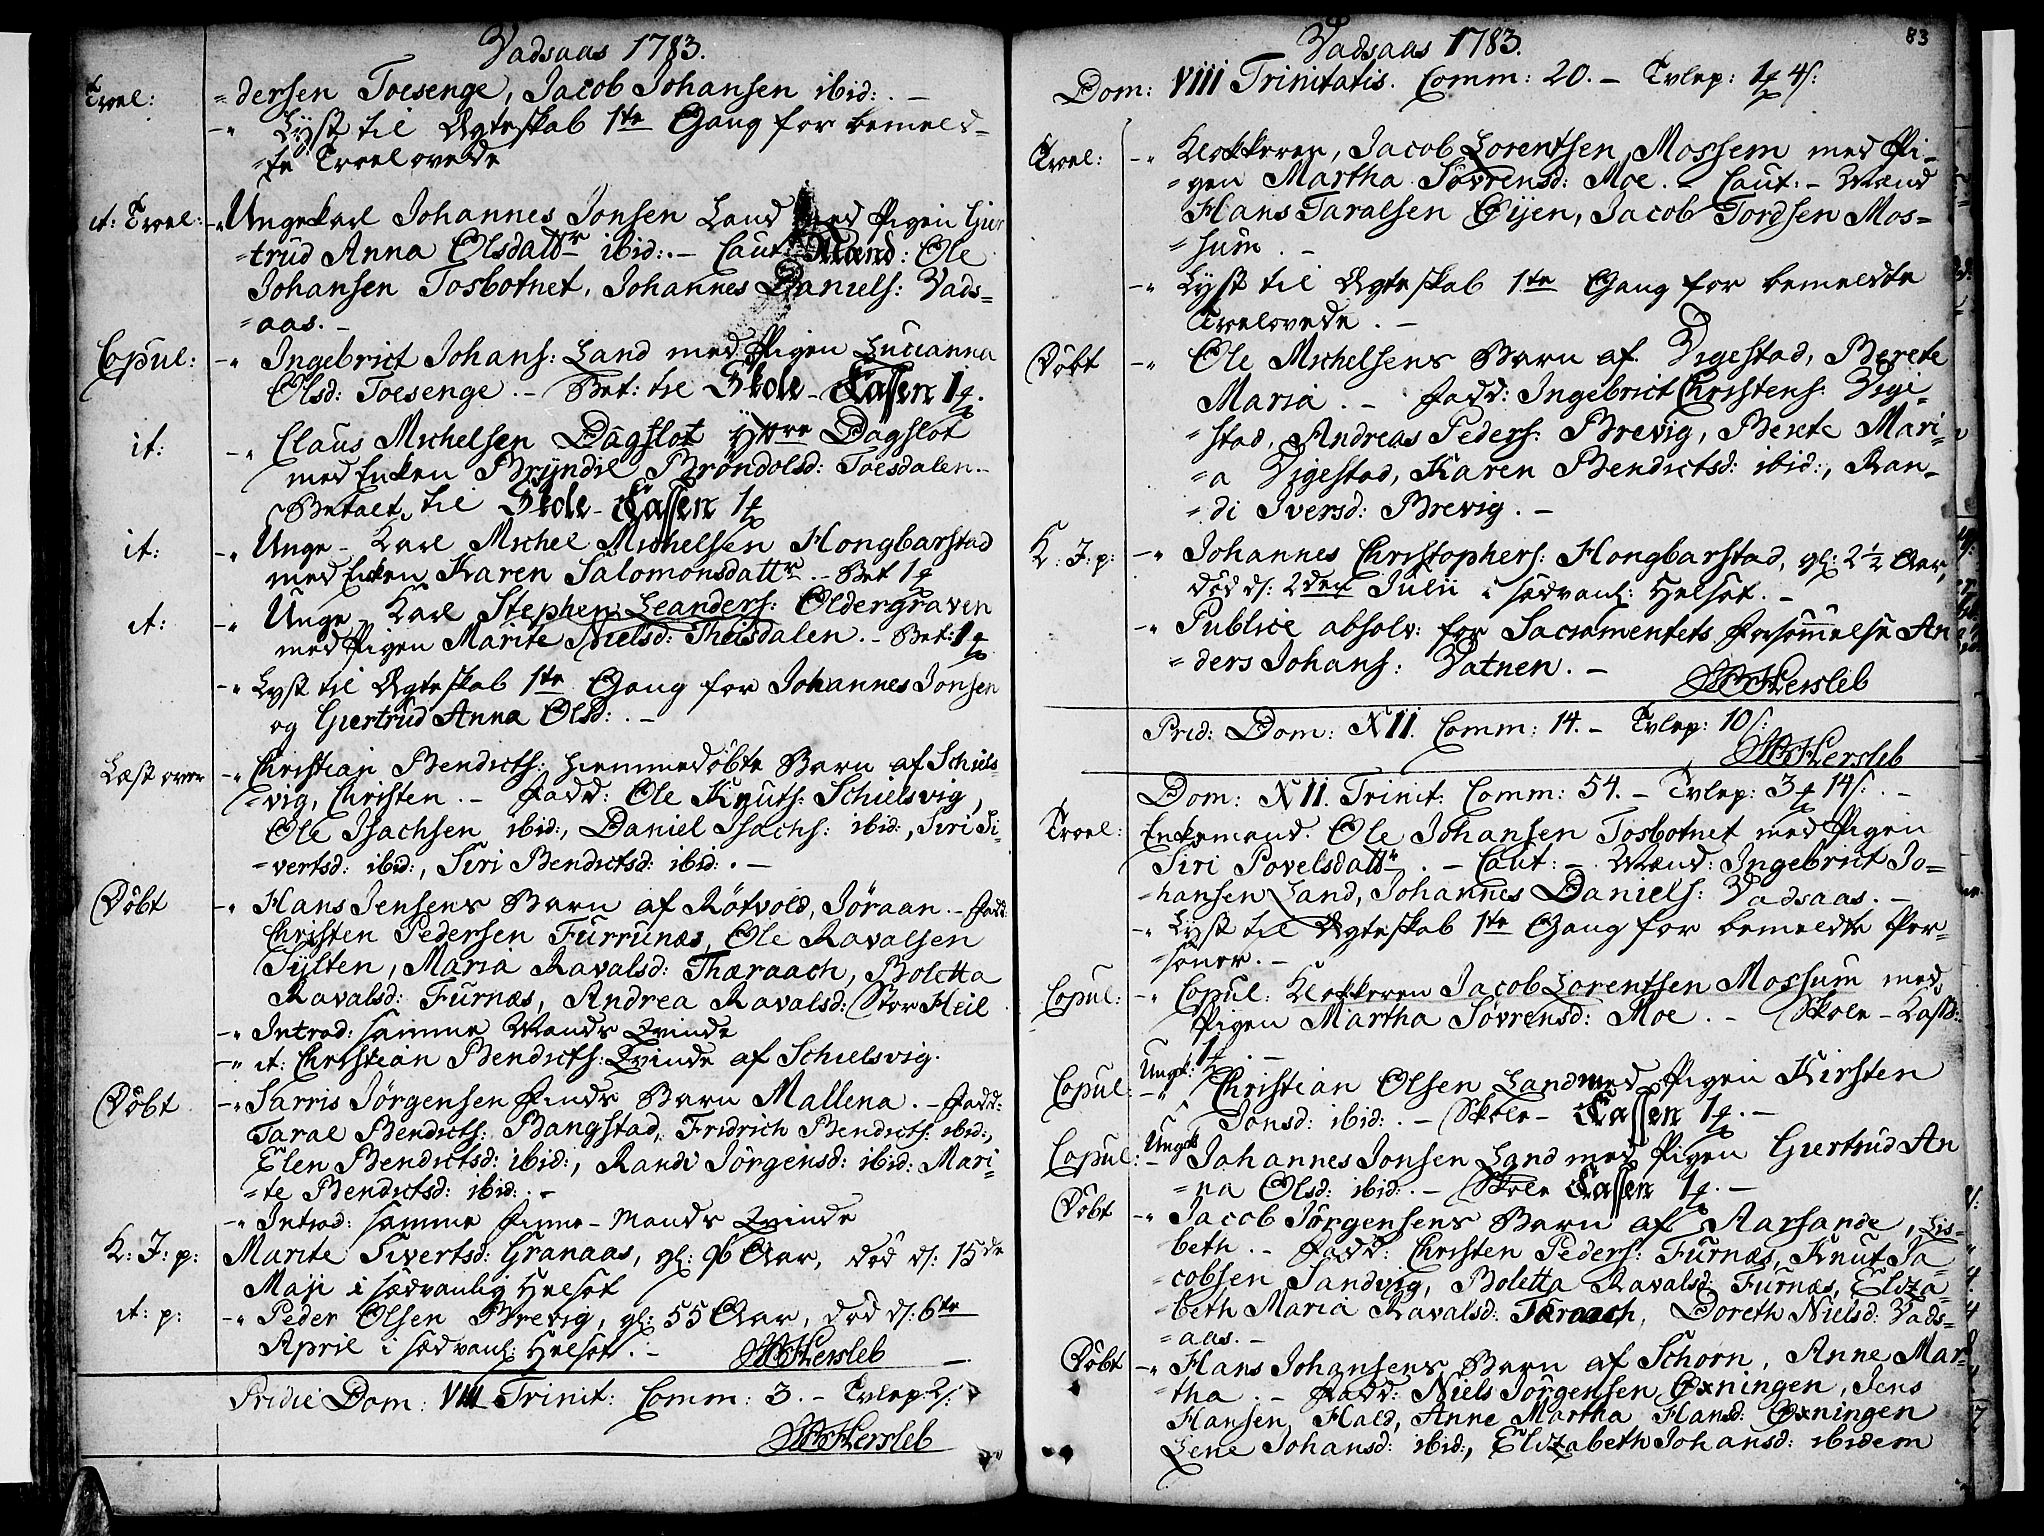 Vadsaas 1783.
Troel: =dersen Toesenge, Jacob Johansen ibid: . -
-" Lyst til Ægteskab 1ste Gang for bemeld=
=te Troelovede
it: Troel: -" Ungekarl Johannes Jonsen Land med Pigen Gier
=trud Anna Olsdattr ibid: . - Caut: Mænd: Ole
Johansen Tosbotnet, Johannes Daniels: Vads=
=aas. -
Copul: -" Ingebrict Johans: Land med Pigen Lucianna
Olsd: Toesenge. - Bet: til Skole-Cassen 1
it: -" Claus Michelsen Dagslot Yttre Dagslot
med Enken Bryndil Bröndolsd: Toesdalen. -
Betalt til Skole-Cassen 1
it: -" Unge-Karl Michel Michelsen Hongbarstad
med Enken Karen Salomonsdattr. - Bet 1
it: -" Unge Karl Stephen Leanders: Oldergraven
med Pigen Marite Nielsd: Theisdalen. - Bet: 1
-" Lyst til Ægteskab 1ste Gang for Johannes Jonsen
og Giertrud Anna Olsd: . -
Læst over -" Christian Bendicts: Hiemmedöbte Barn af Schiels=
=vig, Christen. - Fadd: Ole Knuts: Schielsvig,
Ole Isachsen ibid:, Daniel Isachs: ibid:, Siri Si=
=vertsd: ibid:, Siri Bendictsd: ibid: . -
Döbt -" Hans Jensens Barn af Rötvold, Jöraan. - Fadd:
Christen Pedersen Furrunæs, Ole Ravalsen
Sylten, Maria Ravalsd: Thæraach, Boletta
Ravalsd: Furnæs, Andrea Ravalsd: Stor Heil
-" Introd: samme Mands Qvinde
-" it: Christian Bendicts: Qvinde af Schielsvig.
Döbt -" Sarris Jörgensen Finds Barn Mallena. - Fadd:
Taral Bendicts: Bangstad, Fridrich Bendicts: ibid:,
Elen Bendictsd: ibid:, Randi Jörgensd: ibid: Mari=
=te Bendictsd: ibid: . -
-" Introd: samme Finne-Mands Qvinde
K: J: p: Marite Sivertsd: Granaas, gl: 96 Aar, död d: 15de
Maji i sædvanlig Helsot
it: p: -" Peder Olsen Brevig, gl: 55 Aar, död d: 6te
April i sædvanl: Helsot. - Hersleb
Pridie Dom: VIII Trinit: Comm: 3. - Tvlep: 2 s:
Hersleb
83
Vadsaas 1783.
Dom: VIII Trinitatis. Comm: 20. - Tvlep: 1 4 s:
Troel: -" Klokkeren, Jacob Lorentsen Mossem med Pi=
=gen Martha Sövrensd: Moe. - Caut: - Mænd
Hans Taralsen Öijen, Jacob Tordsen Mos=
=sum. -
-" Lyst til Ægteskab 1ste Gang for bemeldte
Troelovede. -
Döbt -" Ole Michelsens Barn af Vigestad, Berete
Maria. - Fadd: Ingebrict Christens: Vigi=
=stad, Andreas Peders: Brevig, Berete Mari=
=a Vigestad, Karen Bendictsd: ibid:, Ran=
=di Iversd: Brevig. -
K: J: p: -" Johannes Christophers: Hongbarstad, gl: 2½ Aar,
död d: 2den Julii i sædvanl: Helsot. -
-" Publice absolv: for Sacramentets Forsömmelse An
=ders Johans: Vatnen. -
Hersleb
Prid: Dom: XII. Comm: 14. - Tvlep: 10 s:
Hersleb
Dom: XII. Trinit: Comm: 54. - Tvlep: 3 14 s: . -
Troel: Enkemand Ole Johansen Tosbotnet med Pigen
Siri Povelsdattr. - Caut: - Mænd: Ingebrict Jo=
=hansen Land, Johannes Daniels: Vadsaas. -
-" Lyst til Ægteskab 1ste Gang for bemeldte Per=
=soner. -
Copul: -" Copul: Klokkeren Jacob Lorentsen Mossum med
Pigen Martha Sövrensd: Moe. - Skole-Kass:
1 -
Copul: -" Ungk: Christian Olsen Land med Pigen Kirsten
Jonsd: ibid: . - Skole-Cassen 1. -
Copul: - Ungk Johannes Jonsen Land med Pigen Giertrud An
=na Olsd: ibid: . - Skole Cassen 1. -
Döbt -" Jacob Jörgensens Barn af Aarsande, Lis=
beth. - Fadd: Christen Peders: Furnæs, Knut Ja=
=cobsen Sandvig, Boletta Ravalsd: Furnæs, Eliza=
=beth Maria Ravalsd: Taraach, Doreth Nielsd: Vads=
=aas. -
Döbt -" Hans Johansens Barn af Schorn, Anne Mar=
=tha. - Fadd: Niels Jörgensen Öxningen, Jens
Hansen Hald, Anne Martha Hansd: Öxningen
Lene Johansd: ibid:, Elizabeth Johansd: ibidem